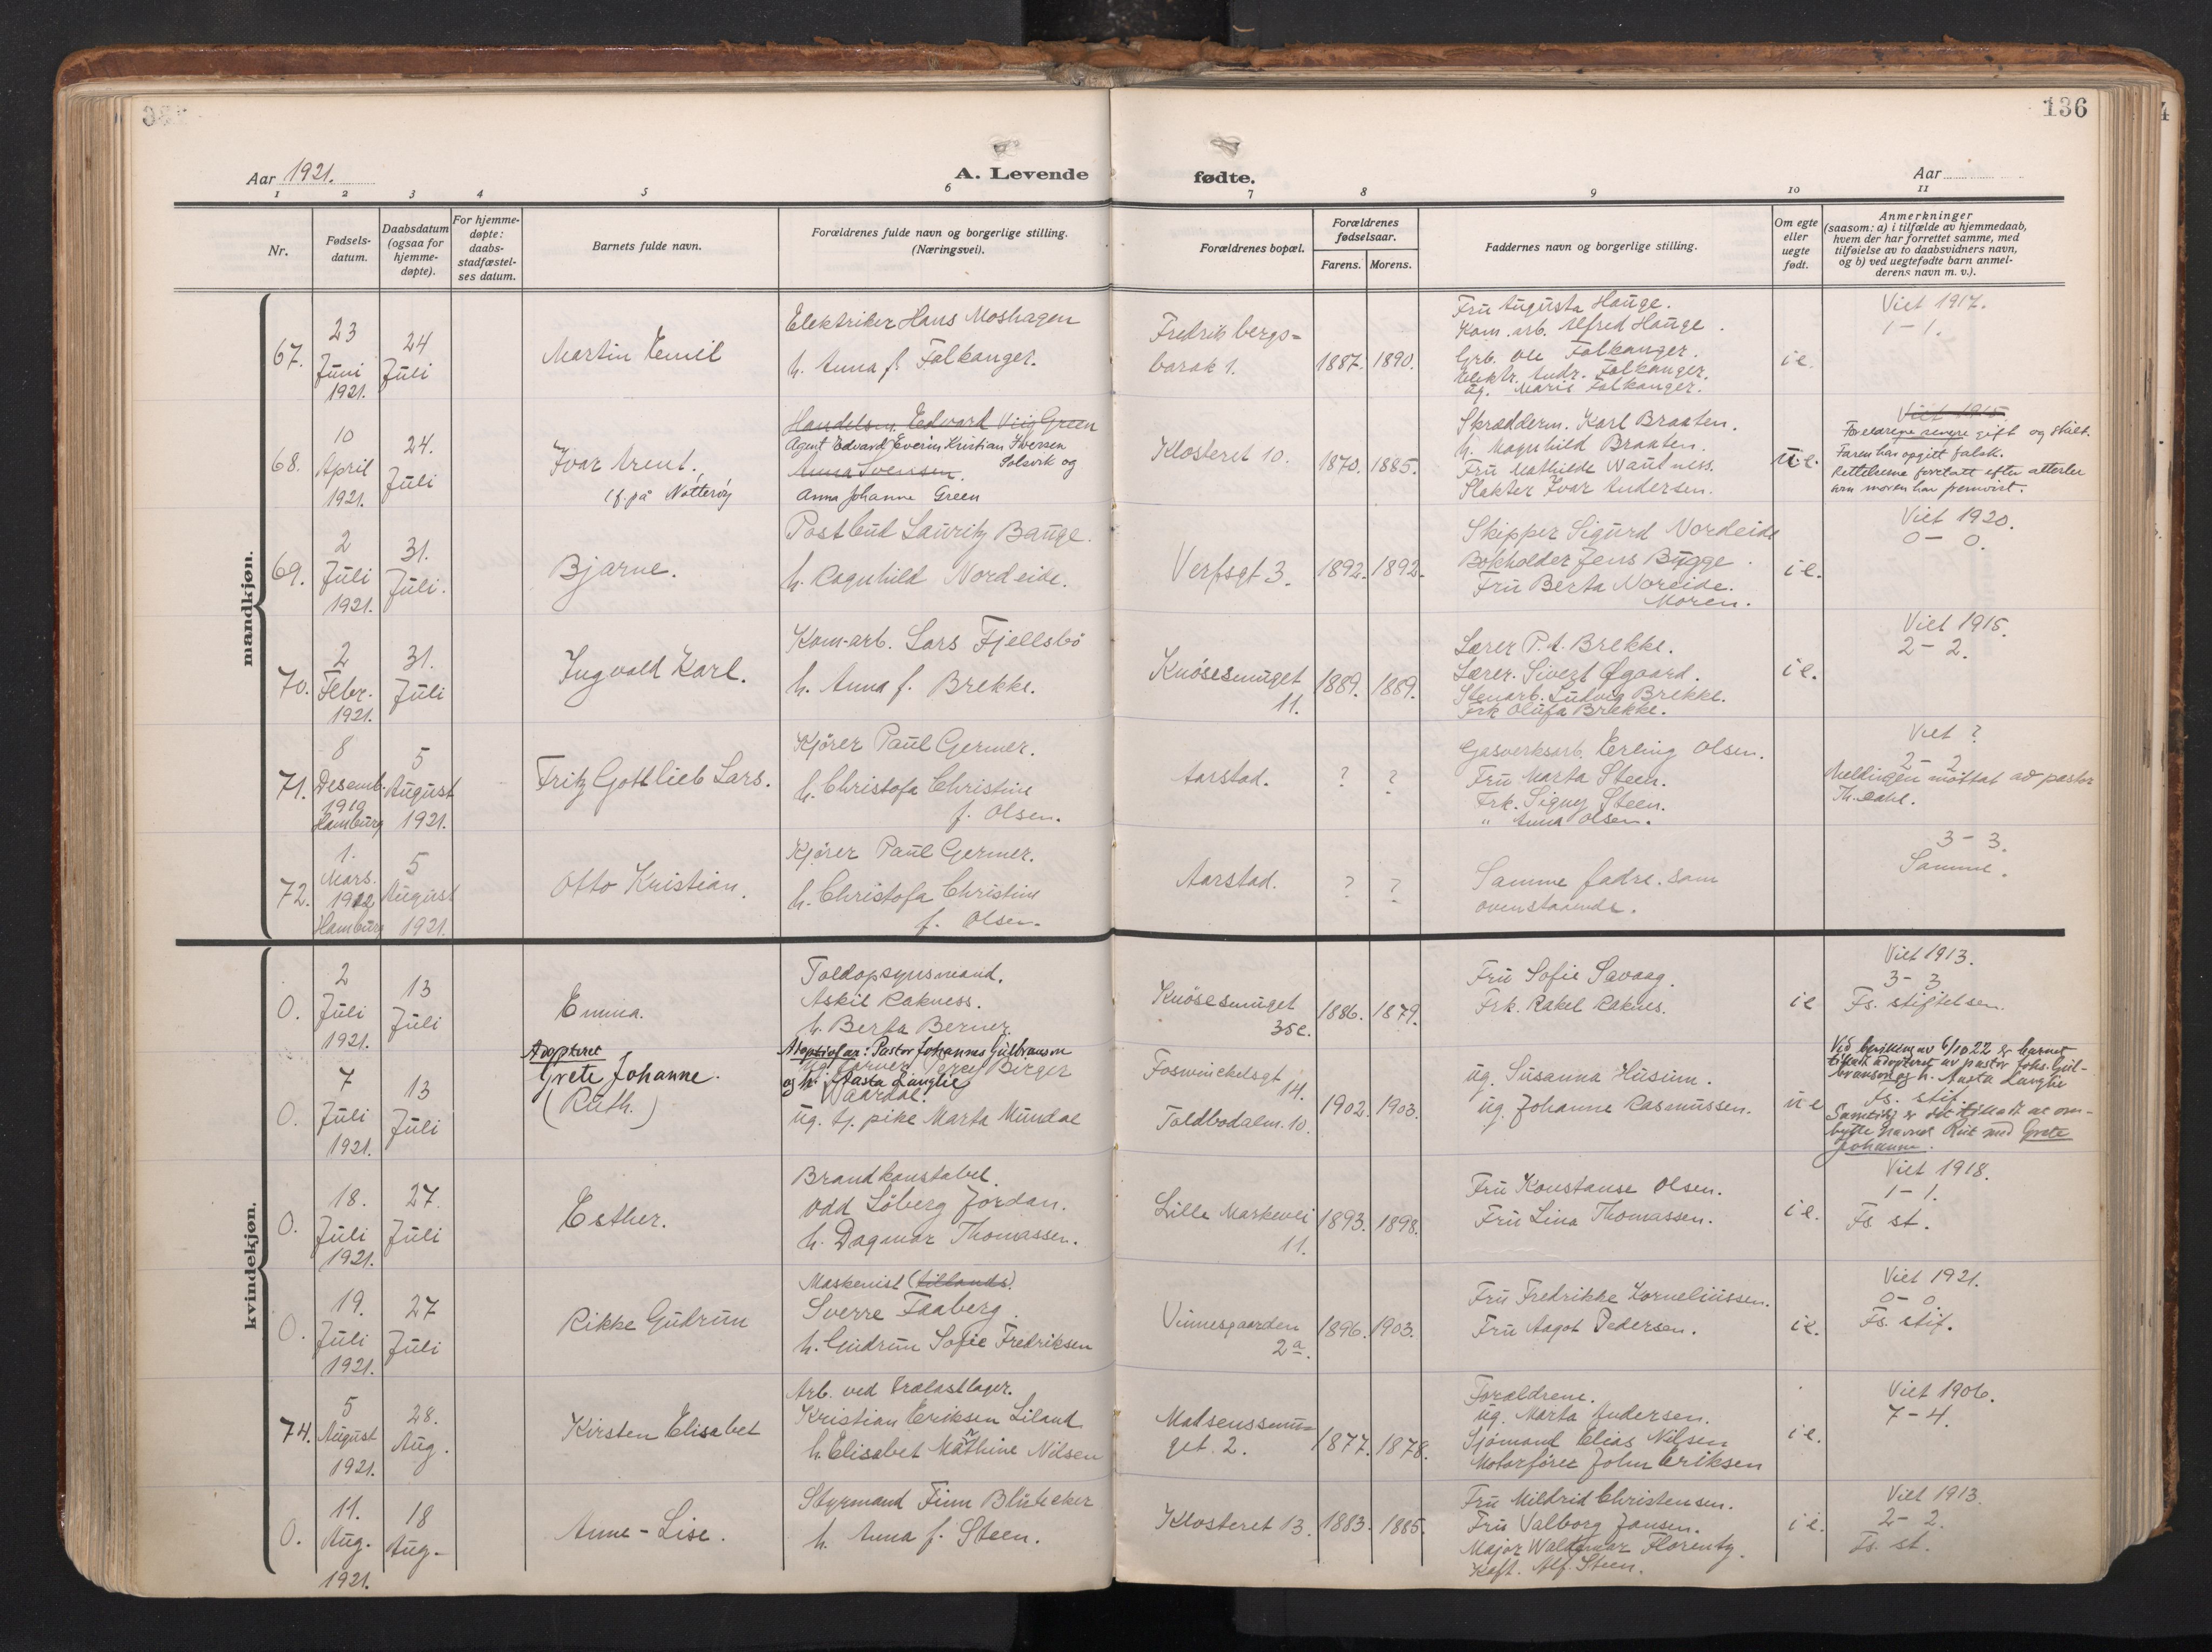 136
Aar 1921.
A. Levende
fødte.
Aar
1 2 3 4 5 6 7 8 9 10 11
Nr.
Fødsels-
datum.
Daabsdatum
(ogsaa for
hjemme-
døpte).
For hjemme-
døpte:
daabs-
stadfæstel-
ses datum.
Barnets fulde navn.
Forældrenes fulde navn og borgerlige stilling.
(Næringsvei).
Forældrenes bopæl.
Forældrenes
fødselsaar.
Farens. Morens.
Faddernes navn og borgerlige stilling.
Om egte
eller
uegte
født.
Anmerkninger
(saasom: a) i tilfælde av hjemmedaab,
hvem der har forrettet samme, med
tilføielse av to daabsvidners navn,
og b) ved uegtefødte barn anmel-
derens navn m. v.).
mandkjøn.
67.
23
Juni
1921.
24
Juli
Martin Emil
Elektriker Hans Moshagen
h. Anna f. Falkanger.
Fredriksbergs-
barak 1.
1887. 1890.
Fru Augusta Hauge.
Kom. arb. Alfred Hauge.
Grb. Ole Falkanger.
Elektr. Andr. Falkanger.
Ug. Marie Falkanger.
i e.
Viet 1917.
1-1.
68.
10
April
1921.
24.
Juli
Ivar Arent.
(f. på Nøtterøy
Handelsm. Edvard Viig Green
Agent Edvard Everin Kristian Iversen
Solsvik og
Anna Svensen.
Anna Johanne Green
Klosteret 10.
1870. 1885.
Skrædderm. Karl Braaten.
h. Magnhild Braaten.
Fru Mathilde Wautness.
Slakter Ivar Andersen.
u.e.
Viet 1915
Foreldrene senere gift og skilt.
Faren har opgitt falsk.
Rettelserne foretatt efter attester
som moren har fremvist.
69.
2
Juli
1921.
31.
Juli.
Bjarne.
Postbud Lauritz Bauge.
h. Ragnhild Nordeide.
Verfsgt 3.
1892. 1892.
Skipper Sigurd Nordeide
Bokholder Jens Bugge.
Fru Berta Noreide.
Moren.
i e.
Viet 1920.
0-0.
70.
2
Febr.
1921.
31.
Juli
Ingvald Karl.
Kom-arb. Lars Fjellsbö
h. Anna f. Brekke.
Knösesmuget
11.
1889. 1889.
Lærer P. A. Brekke.
Lærer. Sivert Øgaard.
Stenarb. Ludvig Brekke.
Frk Olufa Brekke.
i e.
Viet 1915.
2-2.
71.
8
Desemb.
1919
Hamburg
5
August
1921.
Fritz Gottlieb Lars.
Kjörer Paul Germer.
h. Christofa Christine
f. Olsen.
Aarstad.
? ?
Gasverksarb. Erling Olsen.
Fru Marta Steen.
Frk. Signy Steen.
" Anna Olsen.
Viet ?
2-2
Meldingen mottat av pastor
Th. Dahl.
72.
1.
Mars.
Hamburg
5
August
1921.
Otto Kristian.
Kjörer Paul Germer.
h. Christofa Christine
f. Olsen.
Aarstad.
? ?
Samme fadre. som
ovenstaaende.
3-3.
Samme.
kvindekjøn.
0.
2
Juli
1921.
13
Juli
Emma.
Toldopsynsmand.
Askil Rakness.
h. Berta Berner.
Knösesmuget
35c.
1886. 1879.
Fru Sofie Savaag.
Frk. Rakel Raknes.
i e
Viet 1913.
3-3
Fs. stiftelsen.
0.
7
Juli
1921.
13
Juli
Adopteret
Grete Johanne.
(Ruth.)
Adoptivfar: Pastor Johannes Gulbranson
og h. Aasta Langlie
Ug. Farver Percy Birger
Vaardal.
ug. tj. pike Marta Mundal
Foswinckelsgt
14.
Toldbodalm. 10.
1902. 1903.
ug. Susanna Husum.
ug. Johanne Rasmussen.
u e
Ved bevilling av 6/10 22 er barnet
tillatt adopteret av pastor Johs. Gul-
branson og h. Aasta Langlie
Fs. stif.
Samtidig er det tillatt at om-
bytte navnet Rut med Grete
Johanne.
0.
18.
Juli
1921.
27.
Juli
Esther.
Brandkonstabel.
Odd Löberg Jordan.
h. Dagmar Thomassen.
Lille Markevei
11.
1893. 1898.
Fru Konstanse Olsen.
Fru Lina Thomassen.
i e.
Viet 1918.
1-1.
Fs st.
0.
19.
Juli
1921.
27
Juli
Rikke Gudrun
Maskenist (tillands).
Sverre Faaberg.
h. Gudrun Sofie Fredriksen
Vinnesgaarden
2a.
1896. 1903.
Fru Fredrikke Korneliussen.
Fru Aagot Pedersen.
i e.
Viet 1921.
0-0.
Fs. stif.
74.
5
August
1921.
28.
Aug.
Kirsten Elisabet
Arb. ved Trælastlager.
Kristian Eriksen Liland
h. Elisabet Mathine Nilsen
Madsenssmu-
get. 2.
1877. 1878.
Forældrene.
ug. Marta Andersen.
Sjömand Elias Nilsen
Motorförer John Eriksen
i e.
Viet 1906.
7-4.
0.
11.
Aug.
1921.
18
Aug.
Anne-Lise.
Styrmand Finn Blütecher
h. Anna f. Steen.
Klosteret 13.
1883. 1885.
Fru Mildrid Christensen.
Fru Valborg Jansen.
Major Waldemar Florentz.
Kapt. Alf. Steen.
i e.
Viet 1913.
2-2.
Fs. st.